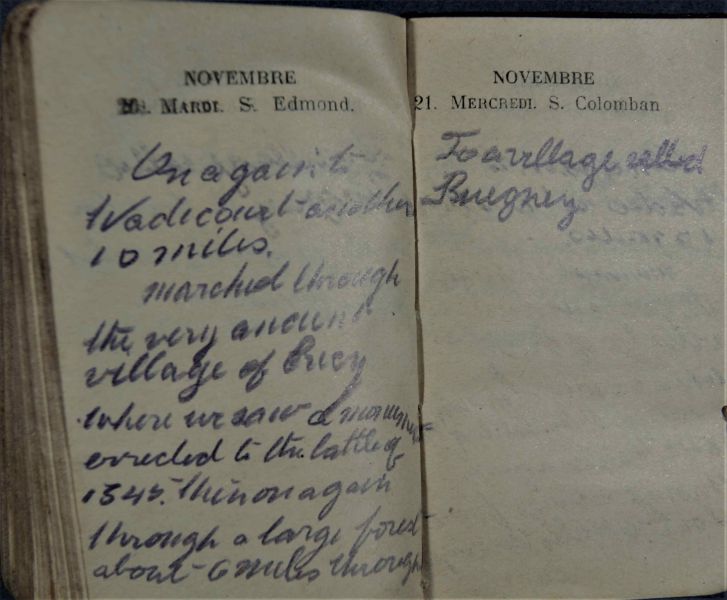 NOVEMBRE
20. MARDI. S. Edmond.
On again to
Wadicourt another
10 miles.
marched through
the very ancient
village of Crecy
where we saw a monument
errected to the battle of
1345. then on again
through a large forest
about 6 miles through
NOVEMBRE
21. MERCREDI. S. Colomban
To a village called